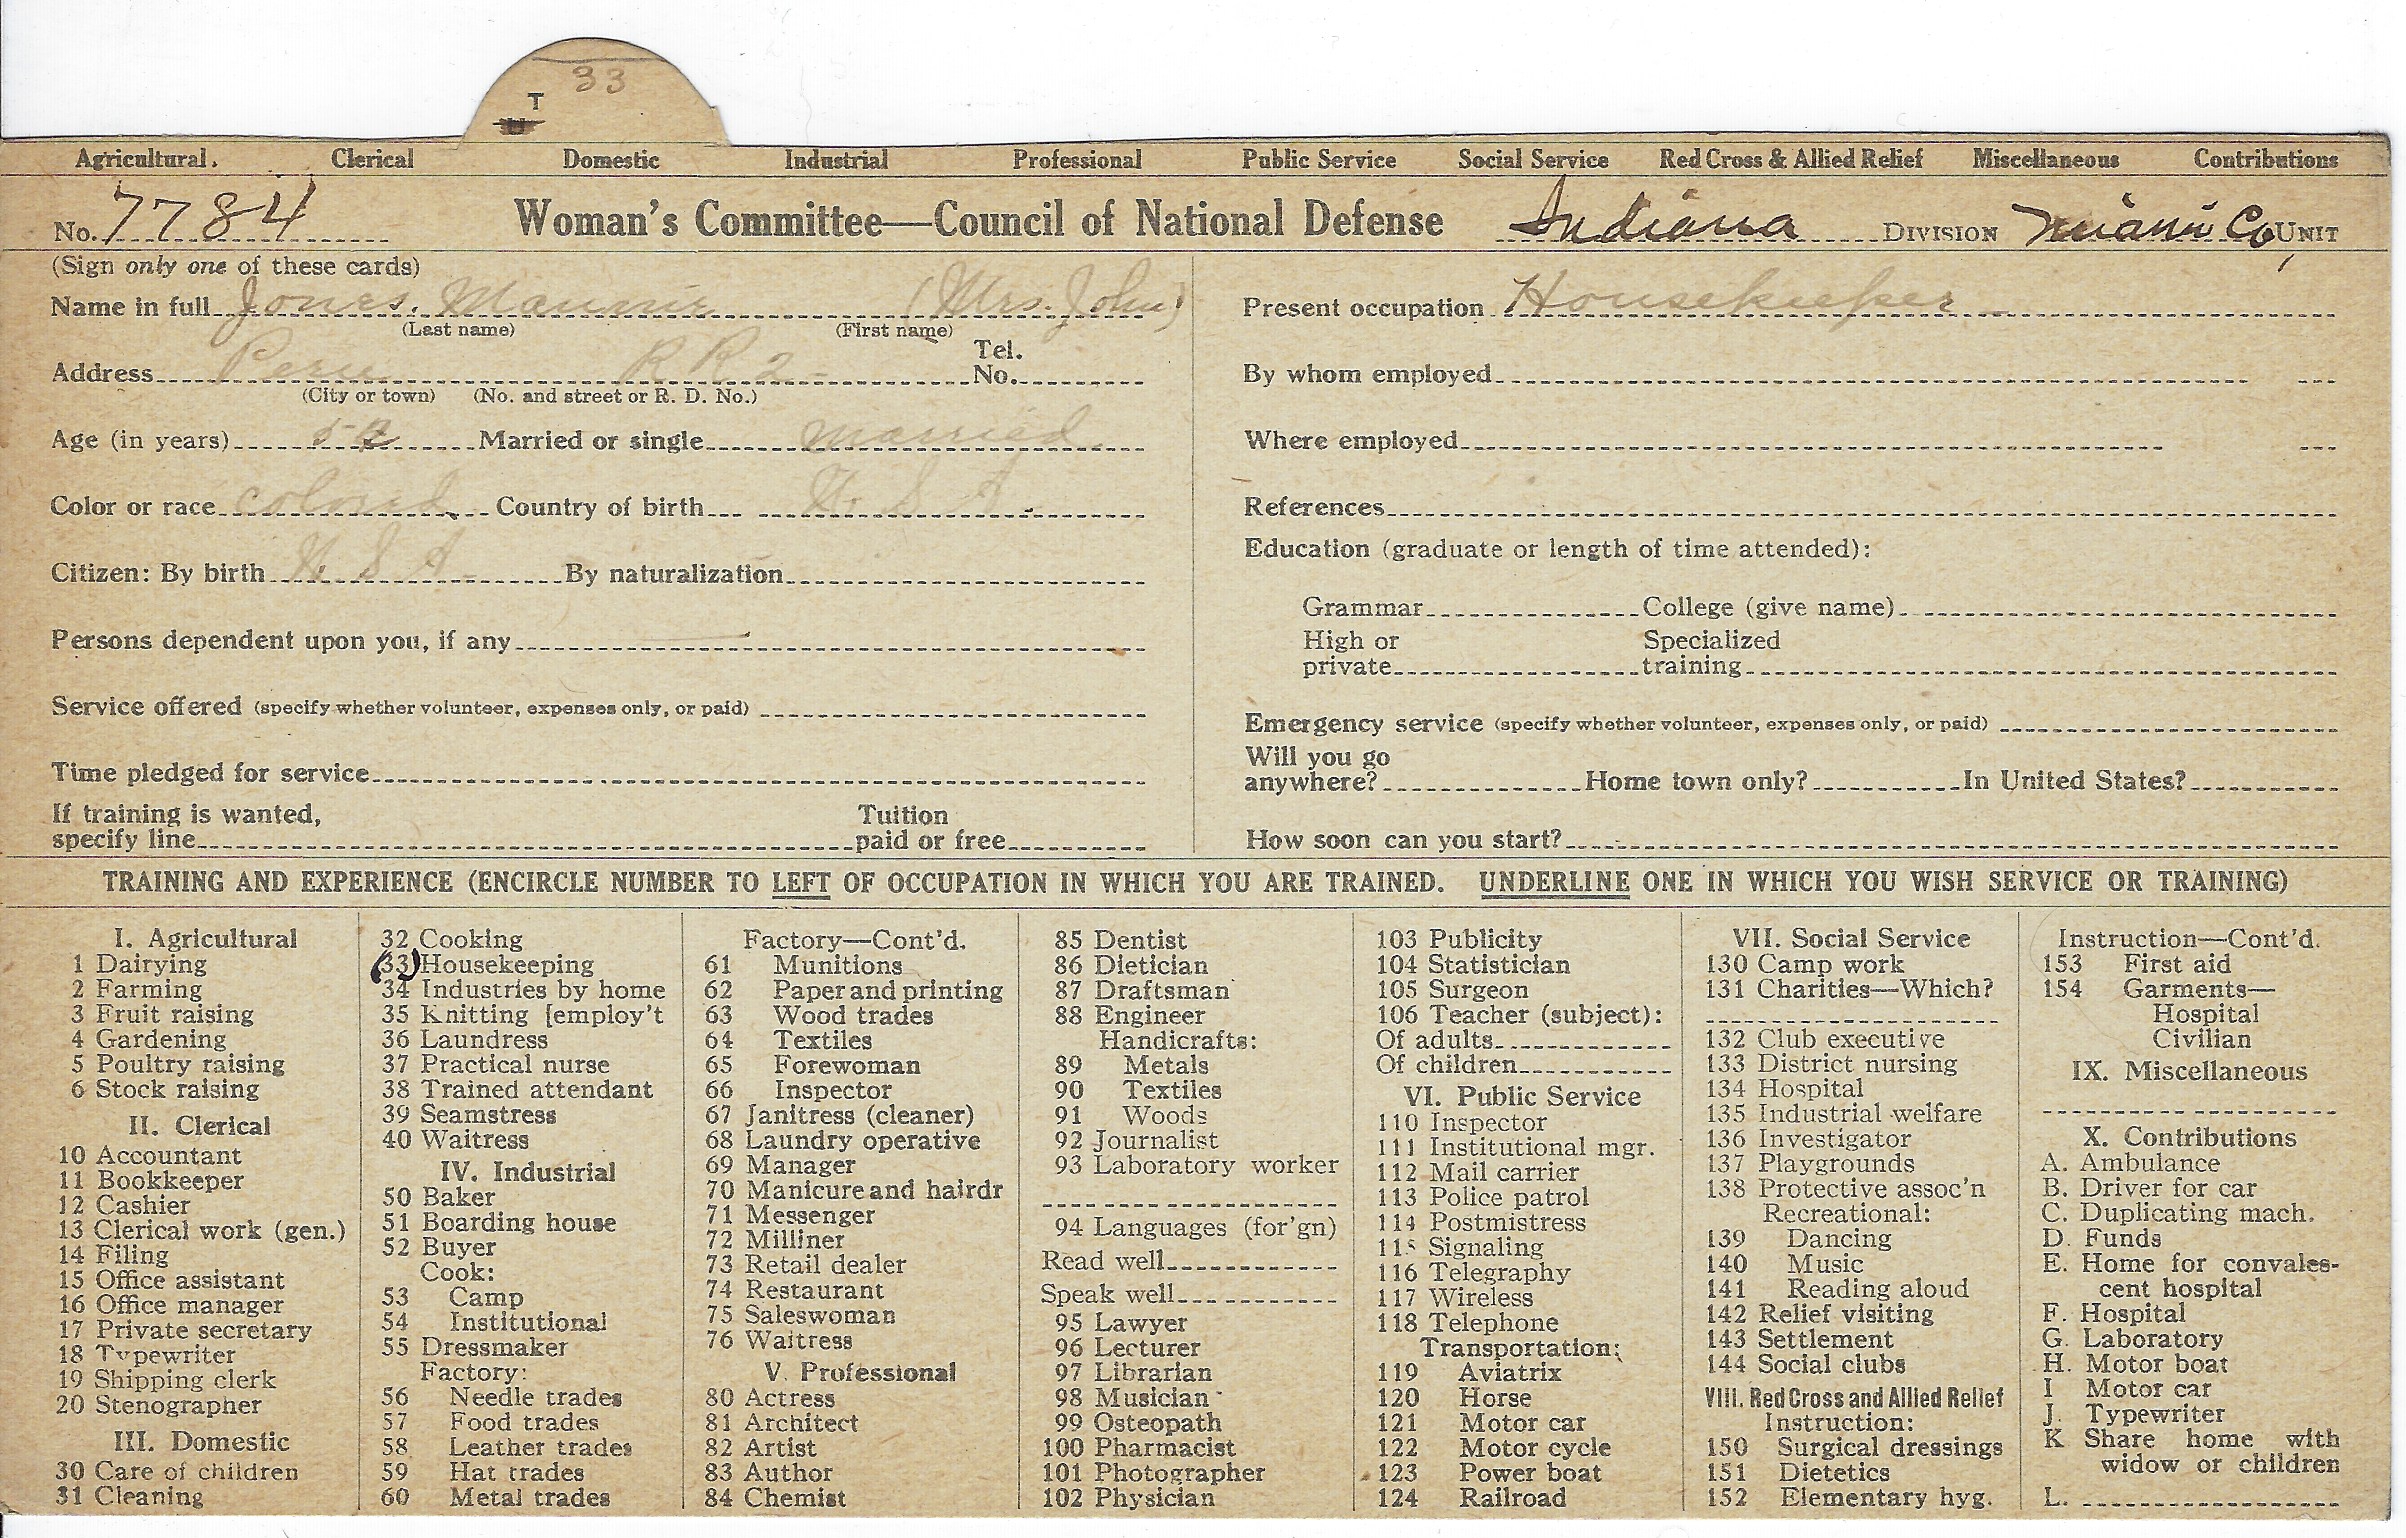 33
T
Agricultural. Clerical Domestic Industrial Professional Public Service Social Service Red Cross & Allied Relief Miscellaneous Contributions
No. 7784 Woman's Committee—Council of National Defense Indiana DIVISION Miami Co. UNIT
(Sign only one of these cards)
Name in full Jones, (Mrs. John)
(Last name) (First name)
Address Peru R R 2 Tel. No.
(City or town) (No. and street or R. D. No.)
Age (in years) Married or single married
Color or race colored Country of birth U. S. A.
Citizen: By birth U. S. A. By naturalization
Persons dependent upon you, if any —
Service offered (specify whether volunteer, expenses only, or paid)
Time pledged for service
If training is wanted, specify line Tuition paid or free
Present occupation Housekeeper
By whom employed
Where employed
References
Education (graduate or length of time attended):
Grammar College (give name)
High or private Specialized training
Emergency service (specify whether volunteer, expenses only, or paid)
Will you go anywhere? Home town only? In United States?
How soon can you start?
TRAINING AND EXPERIENCE (ENCIRCLE NUMBER TO LEFT OF OCCUPATION IN WHICH YOU ARE TRAINED. UNDERLINE ONE IN WHICH YOU WISH SERVICE OR TRAINING)
I. Agricultural
1 Dairying
2 Farming
3 Fruit raising
4 Gardening
5 Poultry raising
6 Stock raising
II. Clerical
10 Accountant
11 Bookkeeper
12 Cashier
13 Clerical work (gen.)
14 Filing
15 Office assistant
16 Office manager
17 Private secretary
18 Typewriter
19 Shipping clerk
20 Stenographer
III. Domestic
30 Care of children
31 Cleaning
32 Cooking
33 Housekeeping
34 Industries by home
35 Knitting [employ't
36 Laundress
37 Practical nurse
38 Trained attendant
39 Seamstress
40 Waitress
IV. Industrial
50 Baker
51 Boarding house
52 Buyer
Cook:
53 Camp
54 Institutional
55 Dressmaker
Factory:
56 Needle trades
57 Food trades
58 Leather trades
59 Hat trades
60 Metal trades
Factory—Cont'd.
61 Munitions
62 Paper and printing
63 Wood trades
64 Textiles
65 Forewoman
66 Inspector
67 Janitress (cleaner)
68 Laundry operative
69 Manager
70 Manicure and hairdr
71 Messenger
72 Milliner
73 Retail dealer
74 Restaurant
75 Saleswoman
76 Waitress
V. Professional
80 Actress
81 Architect
82 Artist
83 Author
84 Chemist
85 Dentist
86 Dietician
87 Draftsman
88 Engineer
Handicrafts:
89 Metals
90 Textiles
91 Woods
92 Journalist
93 Laboratory worker
94 Languages (for'gn)
Read well
Speak well
95 Lawyer
96 Lecturer
97 Librarian
98 Musician
99 Osteopath
100 Pharmacist
101 Photographer
102 Physician
103 Publicity
104 Statistician
105 Surgeon
106 Teacher (subject):
Of adults
Of children
VI. Public Service
110 Inspector
111 Institutional mgr.
112 Mail carrier
113 Police patrol
114 Postmistress
115 Signaling
116 Telegraphy
117 Wireless
118 Telephone
Transportation:
119 Aviatrix
120 Horse
121 Motor car
122 Motor cycle
123 Power boat
124 Railroad
VII. Social Service
130 Camp work
131 Charities—Which?
132 Club executive
133 District nursing
134 Hospital
135 Industrial welfare
136 Investigator
137 Playgrounds
138 Protective assoc'n
Recreational:
139 Dancing
140 Music
141 Reading aloud
142 Relief visiting
143 Settlement
144 Social clubs
VIII. Red Cross and Allied Relief
Instruction:
150 Surgical dressings
151 Dietetics
152 Elementary hyg.
Instruction—Cont'd.
153 First aid
154 Garments—
Hospital
Civilian
IX. Miscellaneous
X. Contributions
A. Ambulance
B. Driver for car
C. Duplicating mach.
D. Funds
E. Home for convales-
cent hospital
F. Hospital
G. Laboratory
H. Motor boat
I Motor car
J. Typewriter
K Share home with
widow or children
L.